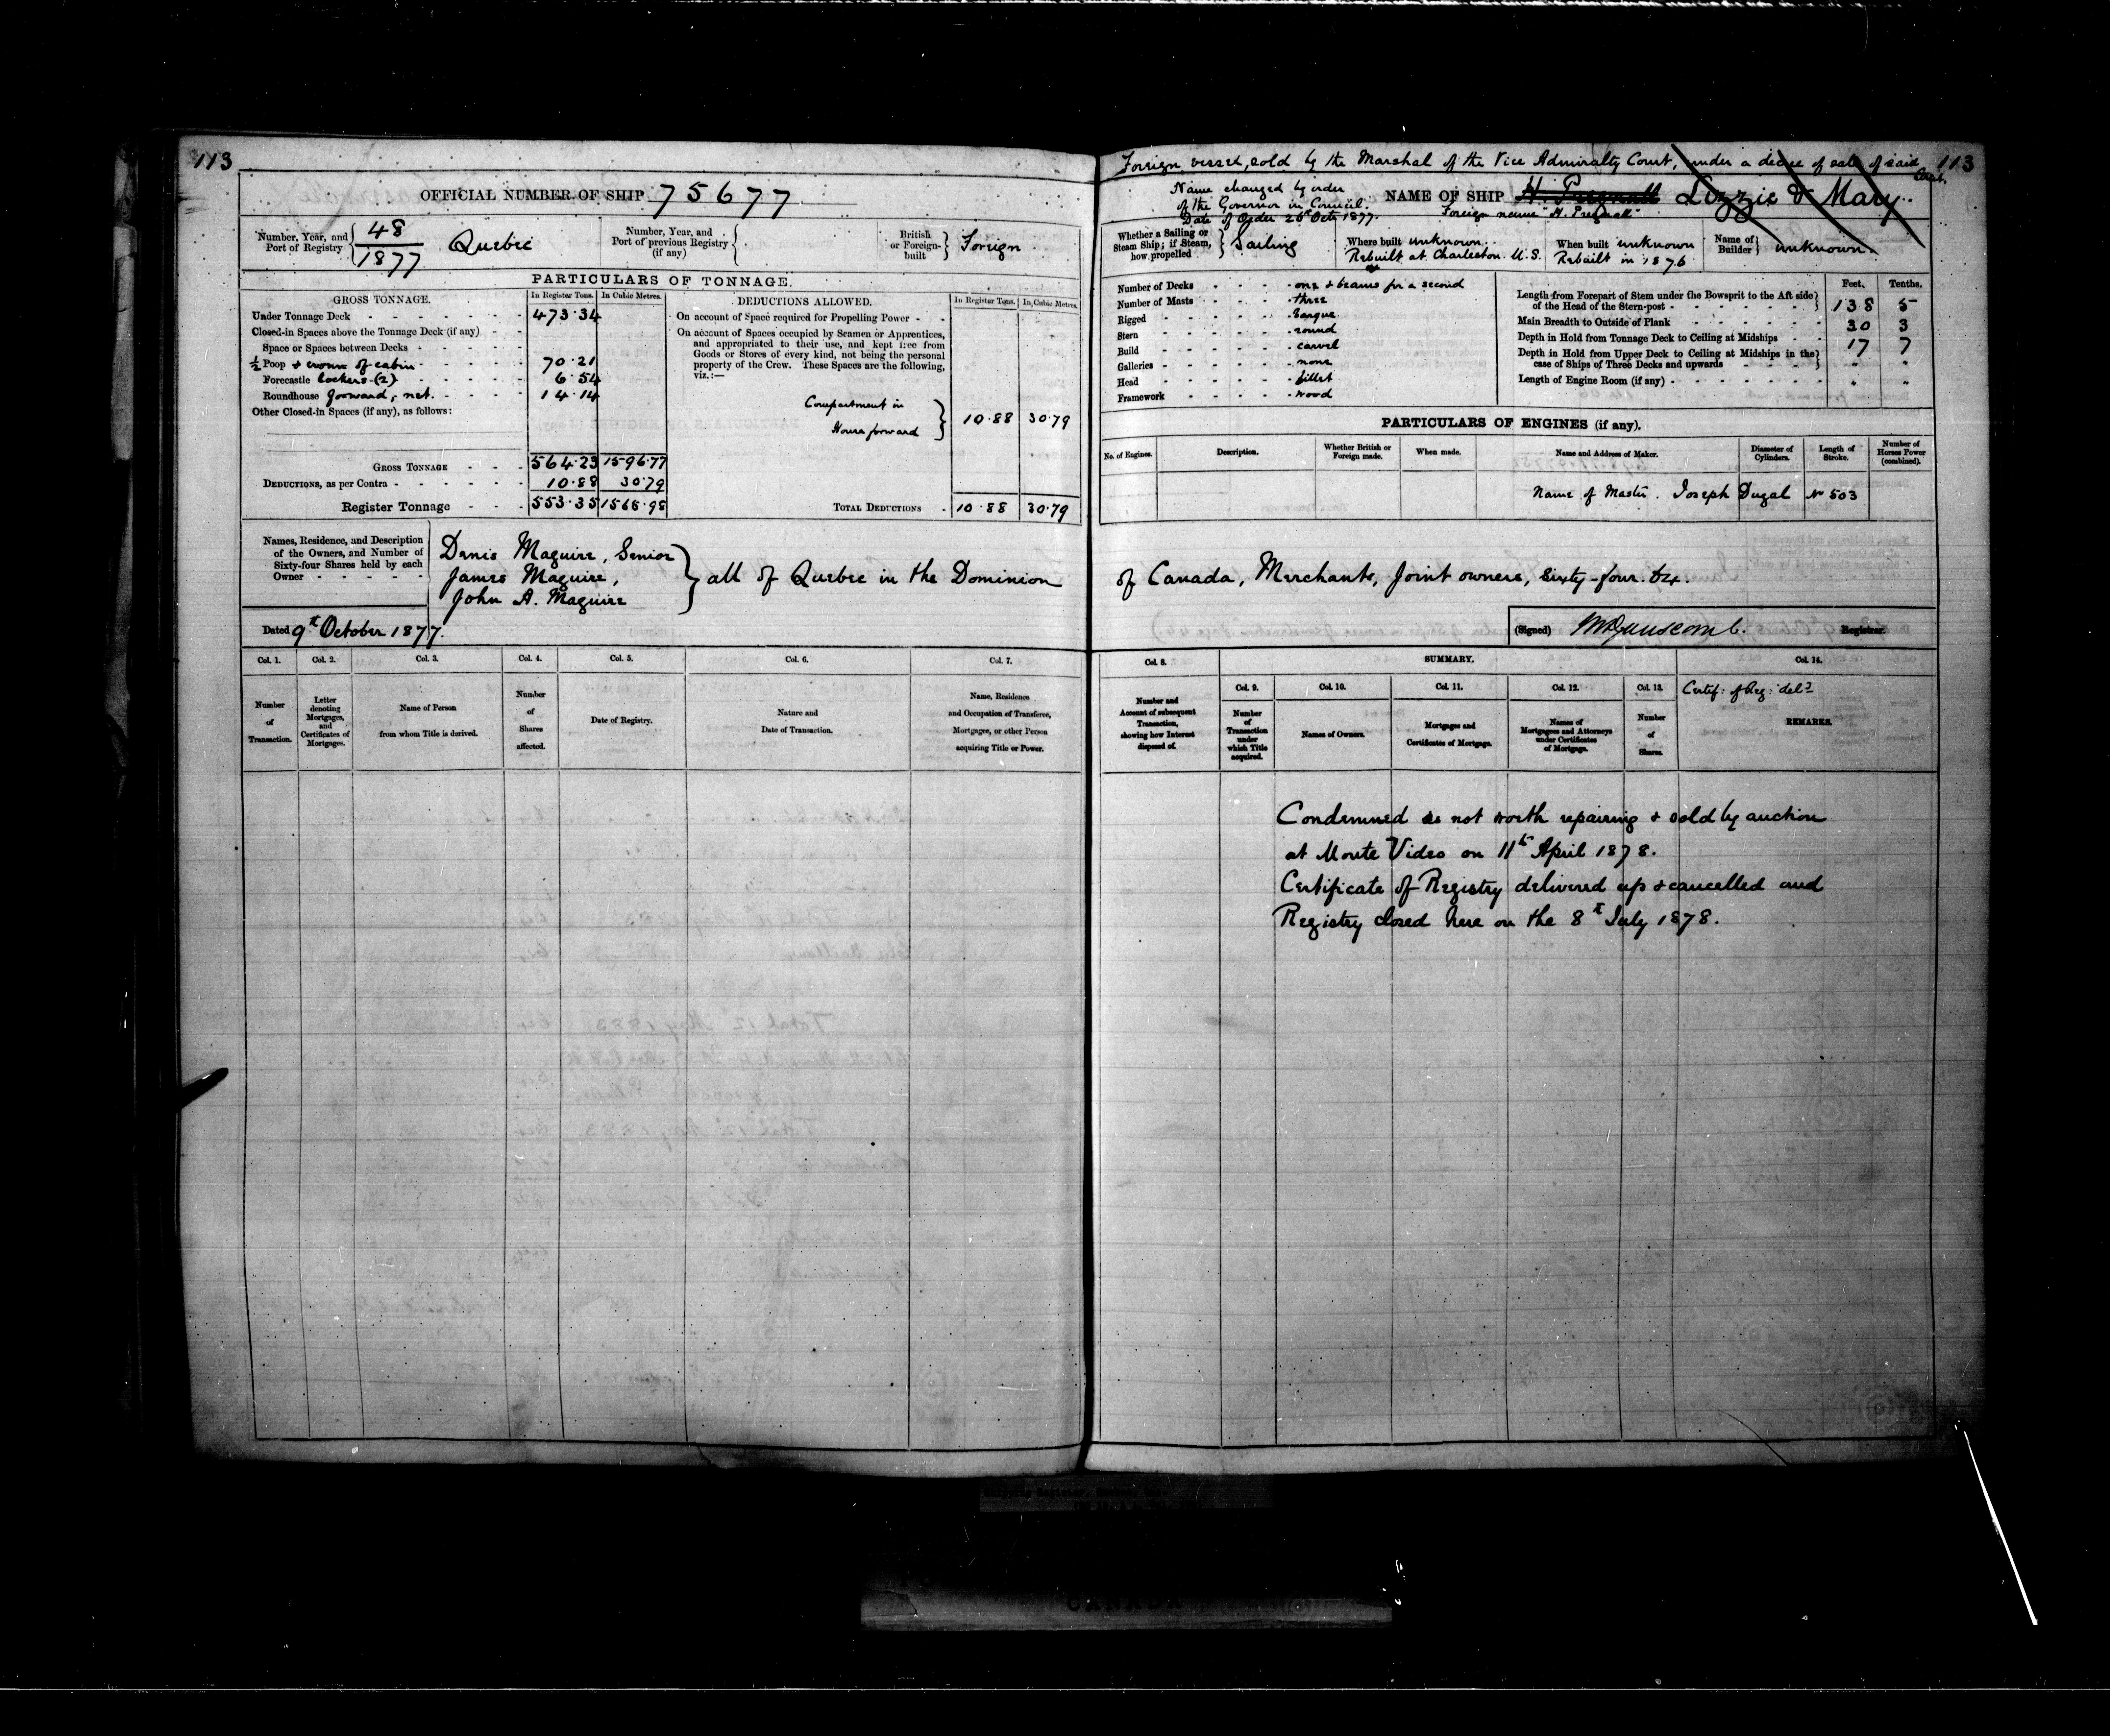 113
OFFICIAL NUMBER OF SHIP 75677
Number, Year, and Port of Registry { 48 / 1877 Quebec
Number, Year, and Port of previous Registry (if any) {
British or Foreign-built } Foreign
PARTICULARS OF TONNAGE.
GROSS TONNAGE. In Register Tons. In Cubic Metres.
Under Tonnage Deck 473.34
Closed-in Spaces above the Tonnage Deck (if any)
Space or Spaces between Decks
½ Poop & crown of cabin 70.21
Forecastle lockers (2) 6.54
Roundhouse forward, net. 14.14
Other Closed-in Spaces (if any), as follows:
GROSS TONNAGE 564.23 1596.77
DEDUCTIONS, as per Contra 10.88 30.79
Register Tonnage 553.35 1565.98
DEDUCTIONS ALLOWED. In Register Tons. In Cubic Metres.
On account of Space required for Propelling Power
On account of Spaces occupied by Seamen or Apprentices,
and appropriated to their use, and kept free from
Goods or Stores of every kind, not being the personal
property of the Crew. These Spaces are the following,
viz.:—
Compartment in
House forward } 10.88 30.79
TOTAL DEDUCTIONS 10.88 30.79
Names, Residence, and Description
of the Owners, and Number of
Sixty-four Shares held by each
Owner
Denis Maguire, Senior
James Maguire,
John A. Maguire
} all of Quebec in the Dominion
Dated 9th October 1877.
Col. 1. Col. 2. Col. 3. Col. 4. Col. 5. Col. 6. Col. 7.
Number of Transaction.
Letter denoting Mortgages, and Certificates of Mortgages.
Name of Person from whom Title is derived.
Number of Shares affected.
Date of Registry.
Nature and Date of Transaction.
Name, Residence and Occupation of Transferee, Mortgagee, or other Person acquiring Title or Power.
Foreign vessel, sold by the Marshal of the Vice Admiralty Court, under a decree of sale of said Court. 113
Name changed by order
of the Governor in Council.
Date of Order 26th Octr 1877.
NAME OF SHIP H. Presnall Lizzie & Mary
Foreign name "H. Presnall"
Whether a Sailing or Steam Ship; if Steam, how propelled } Sailing
Where built unknown.
Rebuilt at Charleston. U.S.
When built unknown
Rebuilt in 1876
Name of Builder } unknown.
Number of Decks one & beams for a second
Number of Masts three
Rigged barque
Stern round
Build carvel
Galleries none
Head fillet
Framework wood
Feet. Tenths.
Length from Forepart of Stem under the Bowsprit to the Aft side
of the Head of the Stern-post } 138 5
Main Breadth to Outside of Plank 30 3
Depth in Hold from Tonnage Deck to Ceiling at Midships 17 7
Depth in Hold from Upper Deck to Ceiling at Midships in the
case of Ships of Three Decks and upwards } " "
Length of Engine Room (if any) " "
PARTICULARS OF ENGINES (if any).
No. of Engines. Description. Whether British or Foreign made. When made. Name and Address of Maker. Diameter of Cylinders. Length of Stroke. Number of Horses Power (combined).
Name of Master. Joseph Dugal No 503
of Canada, Merchants, Joint owners, Sixty-four. 64.
(Signed) Registrar.
Col. 8. SUMMARY. Col. 14.
Col. 9. Col. 10. Col. 11. Col. 12. Col. 13.
Number and Account of subsequent Transaction, showing how Interest disposed of.
Number of Transaction under which Title acquired.
Names of Owners.
Mortgages and Certificates of Mortgage.
Names of Mortgagees and Attorneys under Certificates of Mortgage.
Number of Shares.
Certif: of Reg: deld
REMARKS.
Condemned as not worth repairing & sold by auction
at Monte Video on 11th April 1878.
Certificate of Registry delivered up & cancelled and
Registry closed here on the 8th July 1878.
CANADA